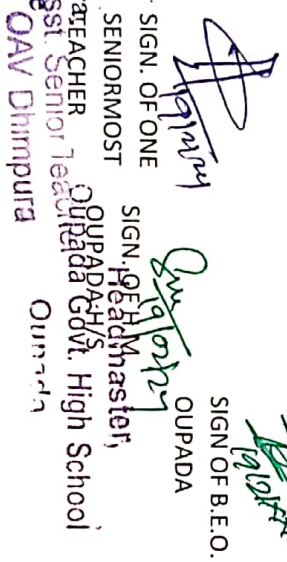 SIGN. OF ONE
SENIORMOST
TEACHER
Asst. Senior Teacher
OAV Dhimpura
SIGN. OF H.M.
OUPADA H/S
Headmaster,
Oupada Govt. High School
Oupada
SIGN OF B.E.O.
OUPADA